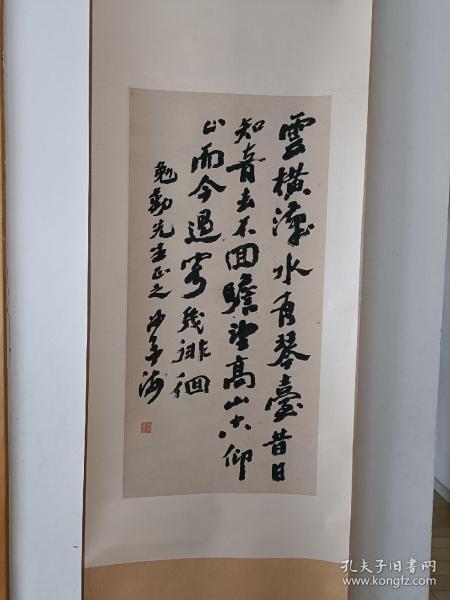 雲橫漢水有琴臺昔日
知音去不回瞻望高山仰
止而今過客幾徘徊
勉勤先生正之 沙孟海
孔夫子旧书网
www.kongfz.com